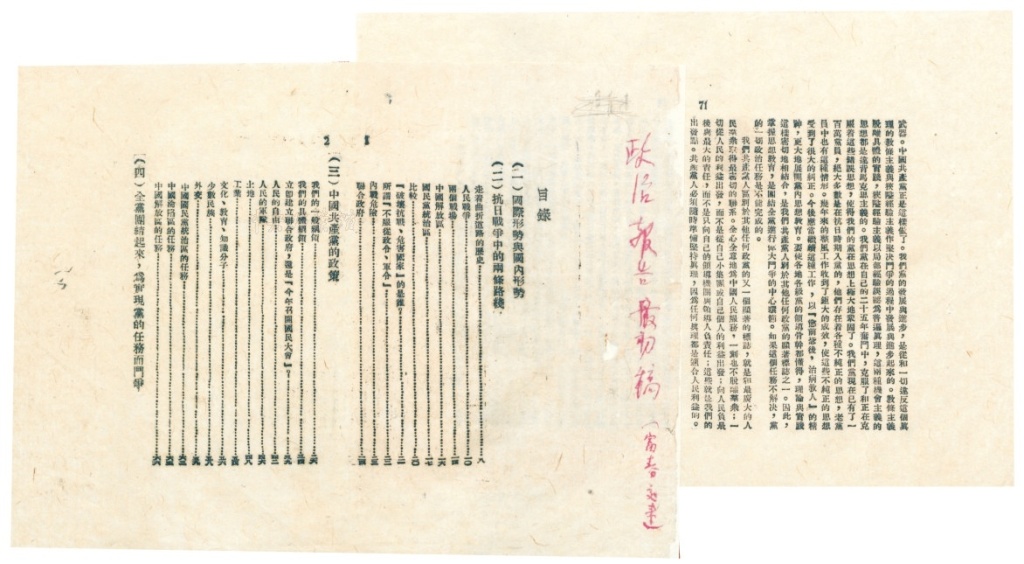 政治報告最初稿
目錄
（一）國際形勢與國內形勢
（二）抗日戰爭中的兩條路綫
走着曲折道路的歷史……八
人民戰爭……一〇
兩個戰場……
中國解放區……
國民黨統治區……
比較……
『破壞抗戰、危害國家』的是誰？……
所謂『不服從政令、軍令』……
內戰危險……
聯合政府……
（三）中國共產黨的政策
我們的一般綱領……
我們的具體綱領……
立即建立聯合政府，還是『今年召開國民大會』？……
人民的自由……
人民的軍隊……
土地……
工業……
文化、教育、知識分子……
少數民族……
外交……
中國國民黨統治區的任務……
中國淪陷區的任務……
中國解放區的任務……
（四）全黨團結起來，爲實現黨的任務而鬥爭
71
武器。中國共產黨正是這樣做了。我們黨的發展與進步，是從和一切違反這個眞
理的教條主義與狹隘經驗主義作堅決鬥爭的過程中發展與進步起來的。教條主義
脫離具體的實踐，狹隘經驗主義以局部經驗誤認爲普遍眞理，這兩種機會主義的
思想都是違背馬克思主義的。我們黨在自己的二十五年奮鬥中，克服了和正在克
服着這些錯誤思想，使得我們的黨在思想上極大地鞏固了。我們黨現在已有了一
百萬黨員，絕大多數是在抗日時期入黨的，他們存在着各種不純正的思想，老黨
員中也有這種情形。幾年來的整風工作收到了絕大的成效，使這些不純正的思想
受到了很大的糾正。今後應當繼續這種工作，以『懲前毖後，治病救人』的精
神，更大地展開黨內思想教育。要使各地各級黨的領導骨幹都懂得，理論與實踐
這樣密切地相結合，是我們共產黨人別於其他任何政黨的顯著標誌之一。因此，
掌握思想教育，是團結全黨進行偉大鬥爭的中心環節。如果這個任務不解決，黨
的一切政治任務是不能完成的。
我們共產黨人區別於其他任何政黨的又一個顯著的標誌，就是和最廣大的人
民羣衆取得最密切的聯系。全心全意地爲中國人民服務，一刻也不脫離羣衆；一
切從人民的利益出發，而不是從自己小集團或自己個人的利益出發；向人民負最
後與最大的責任，而不是只向自己的領導機關與領導人負責任；這些就是我們的
出發點。共產黨人必須隨時準備堅持眞理，因爲任何眞理都是符合人民利益的。